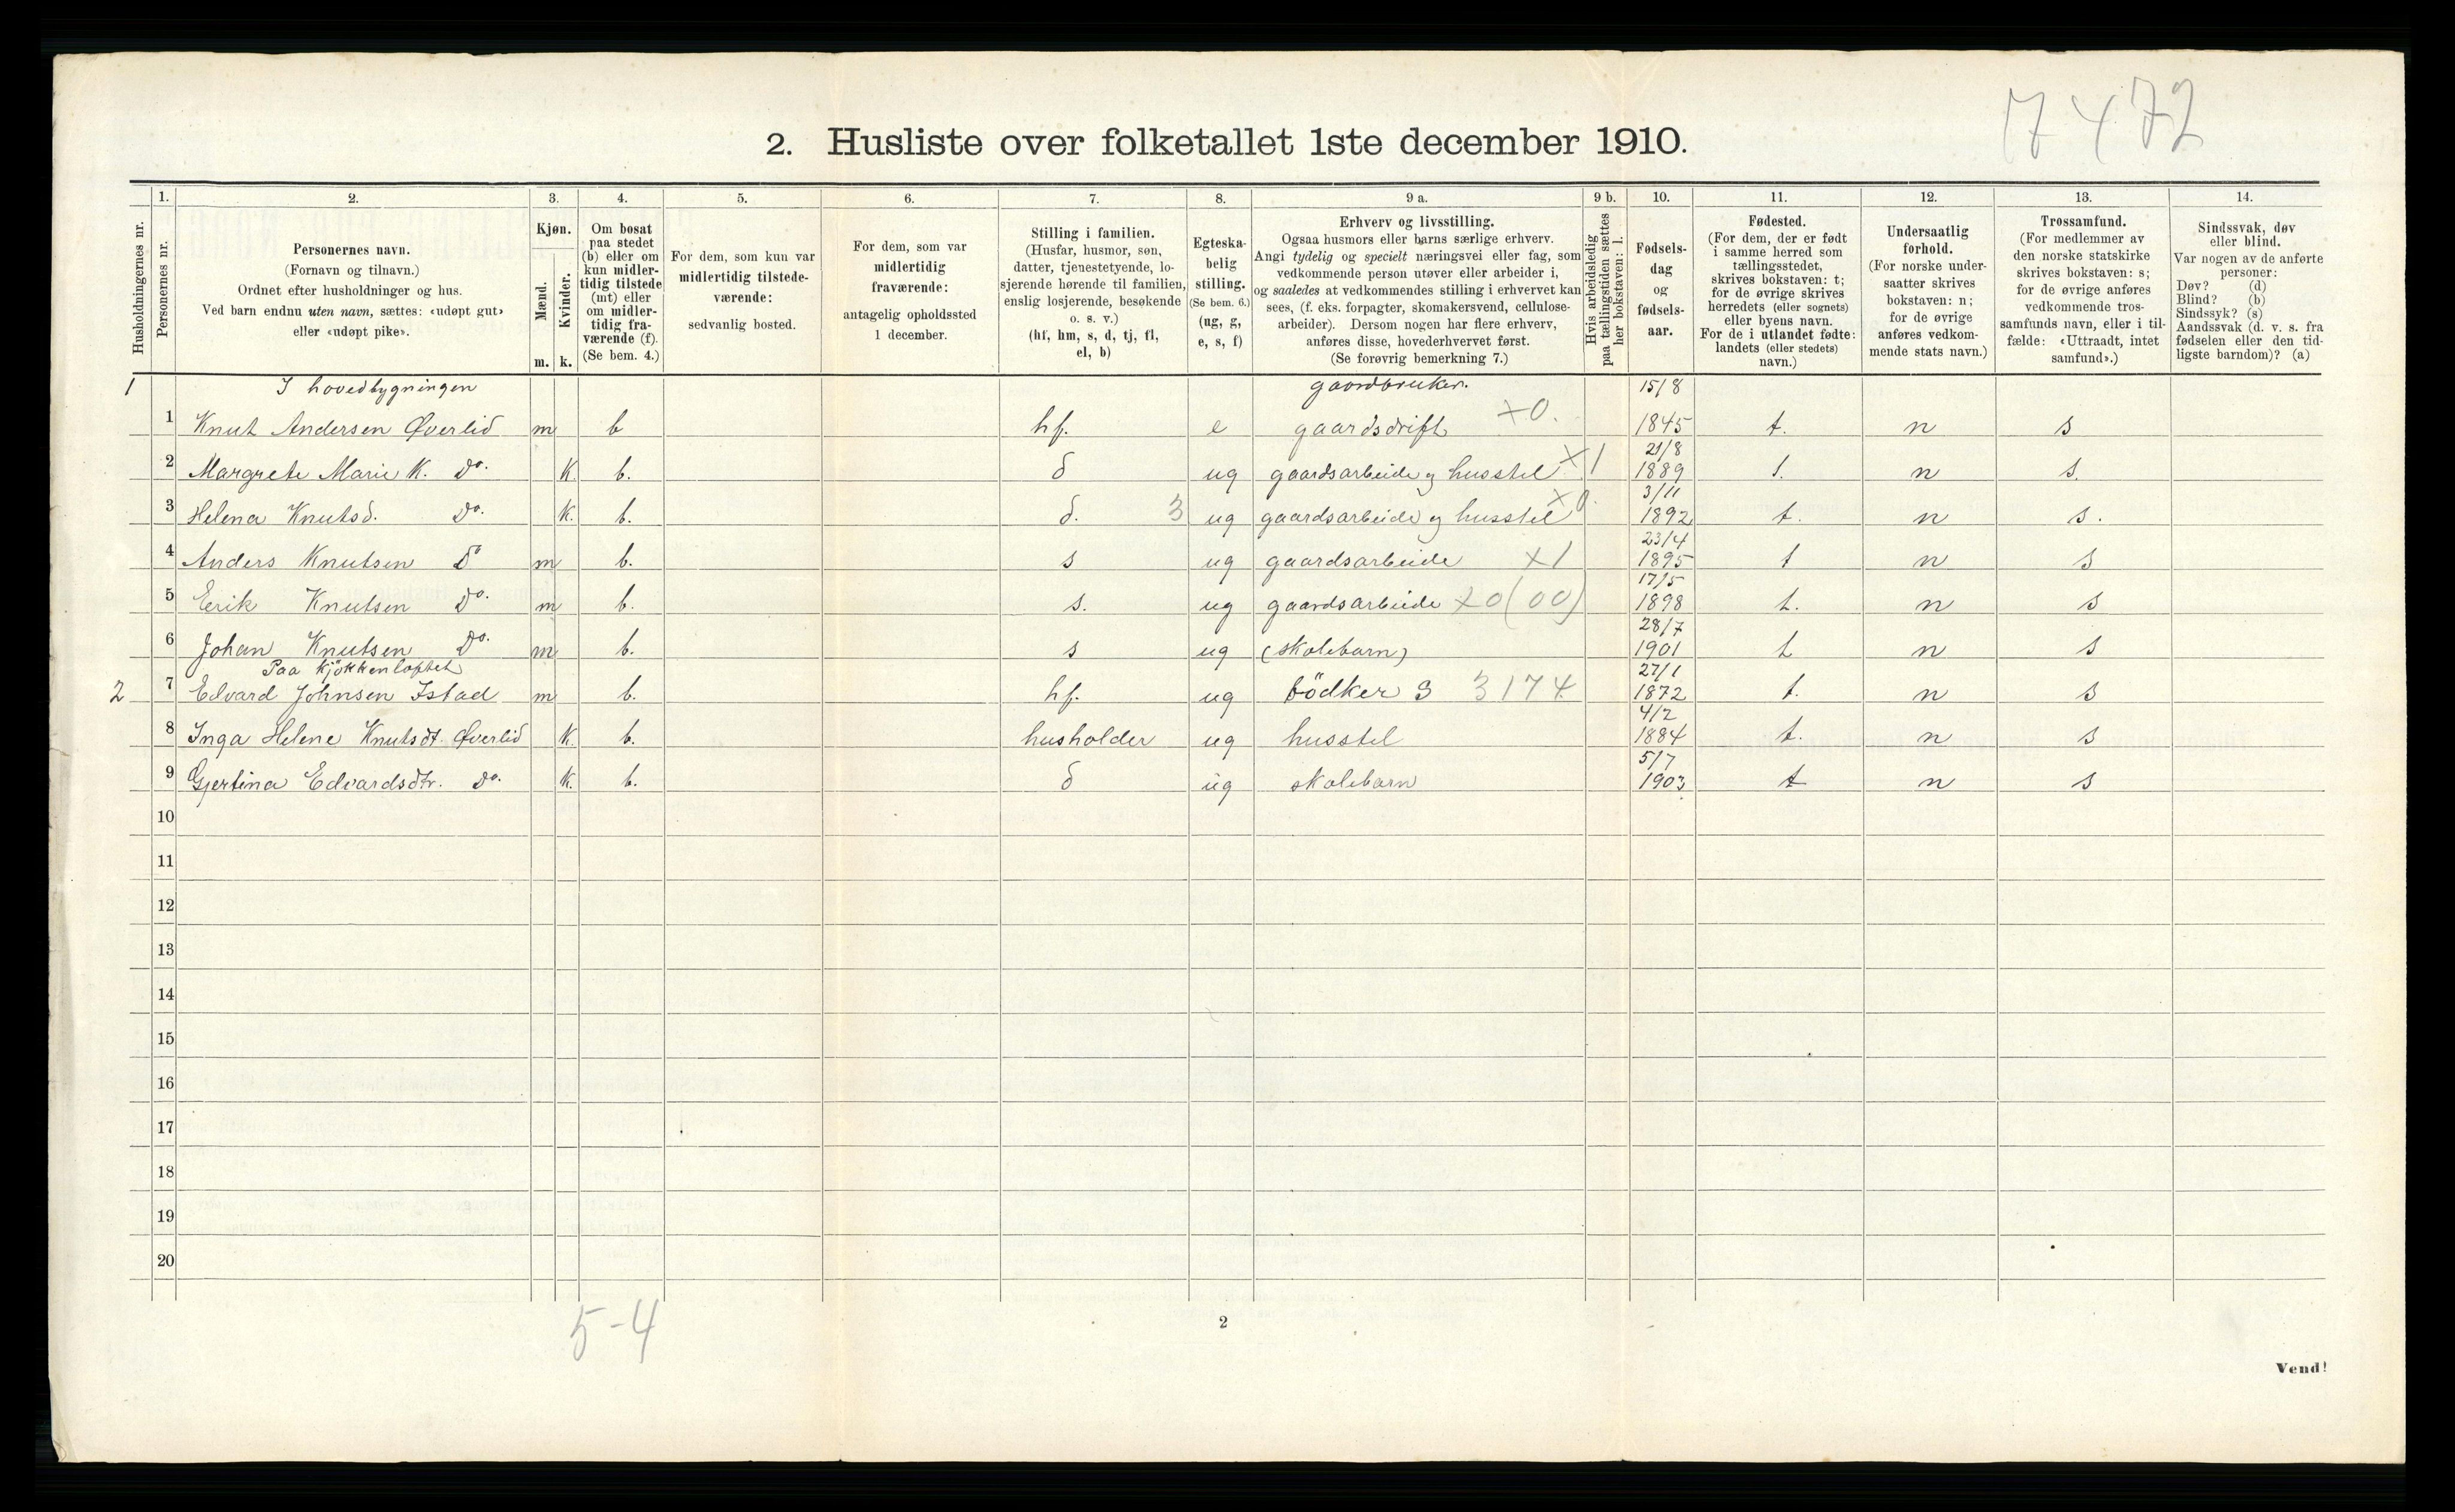 7472
2. Husliste over folketallet 1ste december 1910.
Husholdningernes nr.
1.
Personernes nr.
2.
Personernes navn.
(Fornavn og tilnavn.)
Ordnet efter husholdninger og hus.
Ved barn endnu uten navn, sættes: «udøpt gut»
eller «udøpt pike».
3.
Kjøn.
Mænd.
Kvinder.
m. k.
4.
Om bosat
paa stedet
(b) eller om
kun midler-
tidig tilstede
(mt) eller
om midler-
tidig fra-
værende (f).
(Se bem. 4.)
5.
For dem, som kun var
midlertidig tilstede-
værende:
sedvanlig bosted.
6.
For dem, som var
midlertidig
fraværende:
antagelig opholdssted
1 december.
7.
Stilling i familien.
(Husfar, husmor, søn,
datter, tjenestetyende, lo-
sjerende hørende til familien,
enslig losjerende, besøkende
o. s. v.)
(hf, hm, s, d, tj, fl,
el, b)
8.
Egteska-
belig
stilling.
(Se bem. 6.)
(ug, g,
e, s, f)
9 a.
Erhverv og livsstilling.
Ogsaa husmors eller barns særlige erhverv.
Angi tydelig og specielt næringsvei eller fag, som
vedkommende person utøver eller arbeider i,
og saaledes at vedkommendes stilling i erhvervet kan
sees, (f. eks. forpagter, skomakersvend, cellulose-
arbeider). Dersom nogen har flere erhverv,
anføres disse, hovederhvervet først.
(Se forøvrig bemerkning 7.)
9 b.
Hvis arbeidsledig
paa tællingstiden sættes
her bokstaven: l.
10.
Fødsels-
dag
og
fødsels-
aar.
11.
Fødested.
(For dem, der er født
i samme herred som
tællingsstedet,
skrives bokstaven: t;
for de øvrige skrives
herredets (eller sognets)
eller byens navn.
For de i utlandet fødte:
landets (eller stedets)
navn.)
12.
Undersaatlig
forhold.
(For norske under-
saatter skrives
bokstaven: n;
for de øvrige
anføres vedkom-
mende stats navn.)
13.
Trossamfund.
(For medlemmer av
den norske statskirke
skrives bokstaven: s;
for de øvrige anføres
vedkommende tros-
samfunds navn, eller i til-
fælde: «Uttraadt, intet
samfund».)
14.
Sindssvak, døv
eller blind.
Var nogen av de anførte
personer:
Døv? (d)
Blind? (b)
Sindssyk? (s)
Aandssvak (d. v. s. fra
fødselen eller den tid-
ligste barndom)? (a)
1 I hovedbygningen gaardbruker. 15/8
1 Knut Andersen Øverlid m b hf. e gaardsdrift x0. 1845 t. n s
2 Margrete Marie K. do. K. b. d ug gaardsarbeide og husstel x1 21/8 1889 t. n s.
3 Helena Knutsd. do. K. b. d. 3 ug gaardsarbeide og husstel x0. 3/11 1892 t. n s.
4 Anders Knutsen do m b. s ug gaardsarbeide x1 23/4 1895 t n s
5 Eerik Knutsen do. m b. s. ug gaardsarbeide x0(00) 17/5 1898 t. n s
6 Johan Knutsen do. m b. s ug (skolebarn) 28/7 1901 t n s
Paa Kjökkenloptet
2 7 Edvard Johnsen Istad m b. hf. ug bödker S 3174 27/1 1872 t. n s
8 Inga Helene Knutsdt. Øverlid K. b. husholder ug husstel 4/2 1884 t. n s
9 Gjertina Edvardsdtr. do. K. b. d ug skolebarn 5/7 1903 t n s
10
11
12
13
14
15
16
17
18
19
20
5-4
2
Vend!